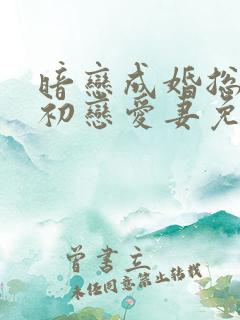 暗戀成婚
初戀愛妻
曾書立
未经同意禁止转载